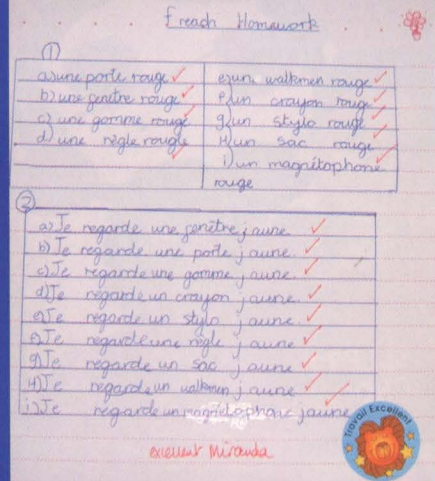 French Homework
①
a) une porte rouge
b) une fenêtre rouge
c) une gomme rouge
d) une règle rougle
e) un walkmen rouge
f) un crayon rouge
g) un stylo rouge
H) un sac rouge
i) un magnétophone
rouge
②
a) Je regarde une fenêtre jaune.
b) Je regarde une porte jaune.
c) Je regarde une gomme jaune.
d) Je regarde un crayon jaune.
e) Je regarde un stylo jaune.
Je regarde une règle jaune
g) Je regarde un sac jaune.
H) Je regarde un walkmen jaune
i) Je regarde un magnétophone jaune
excellent Miranda
Travail Excellent